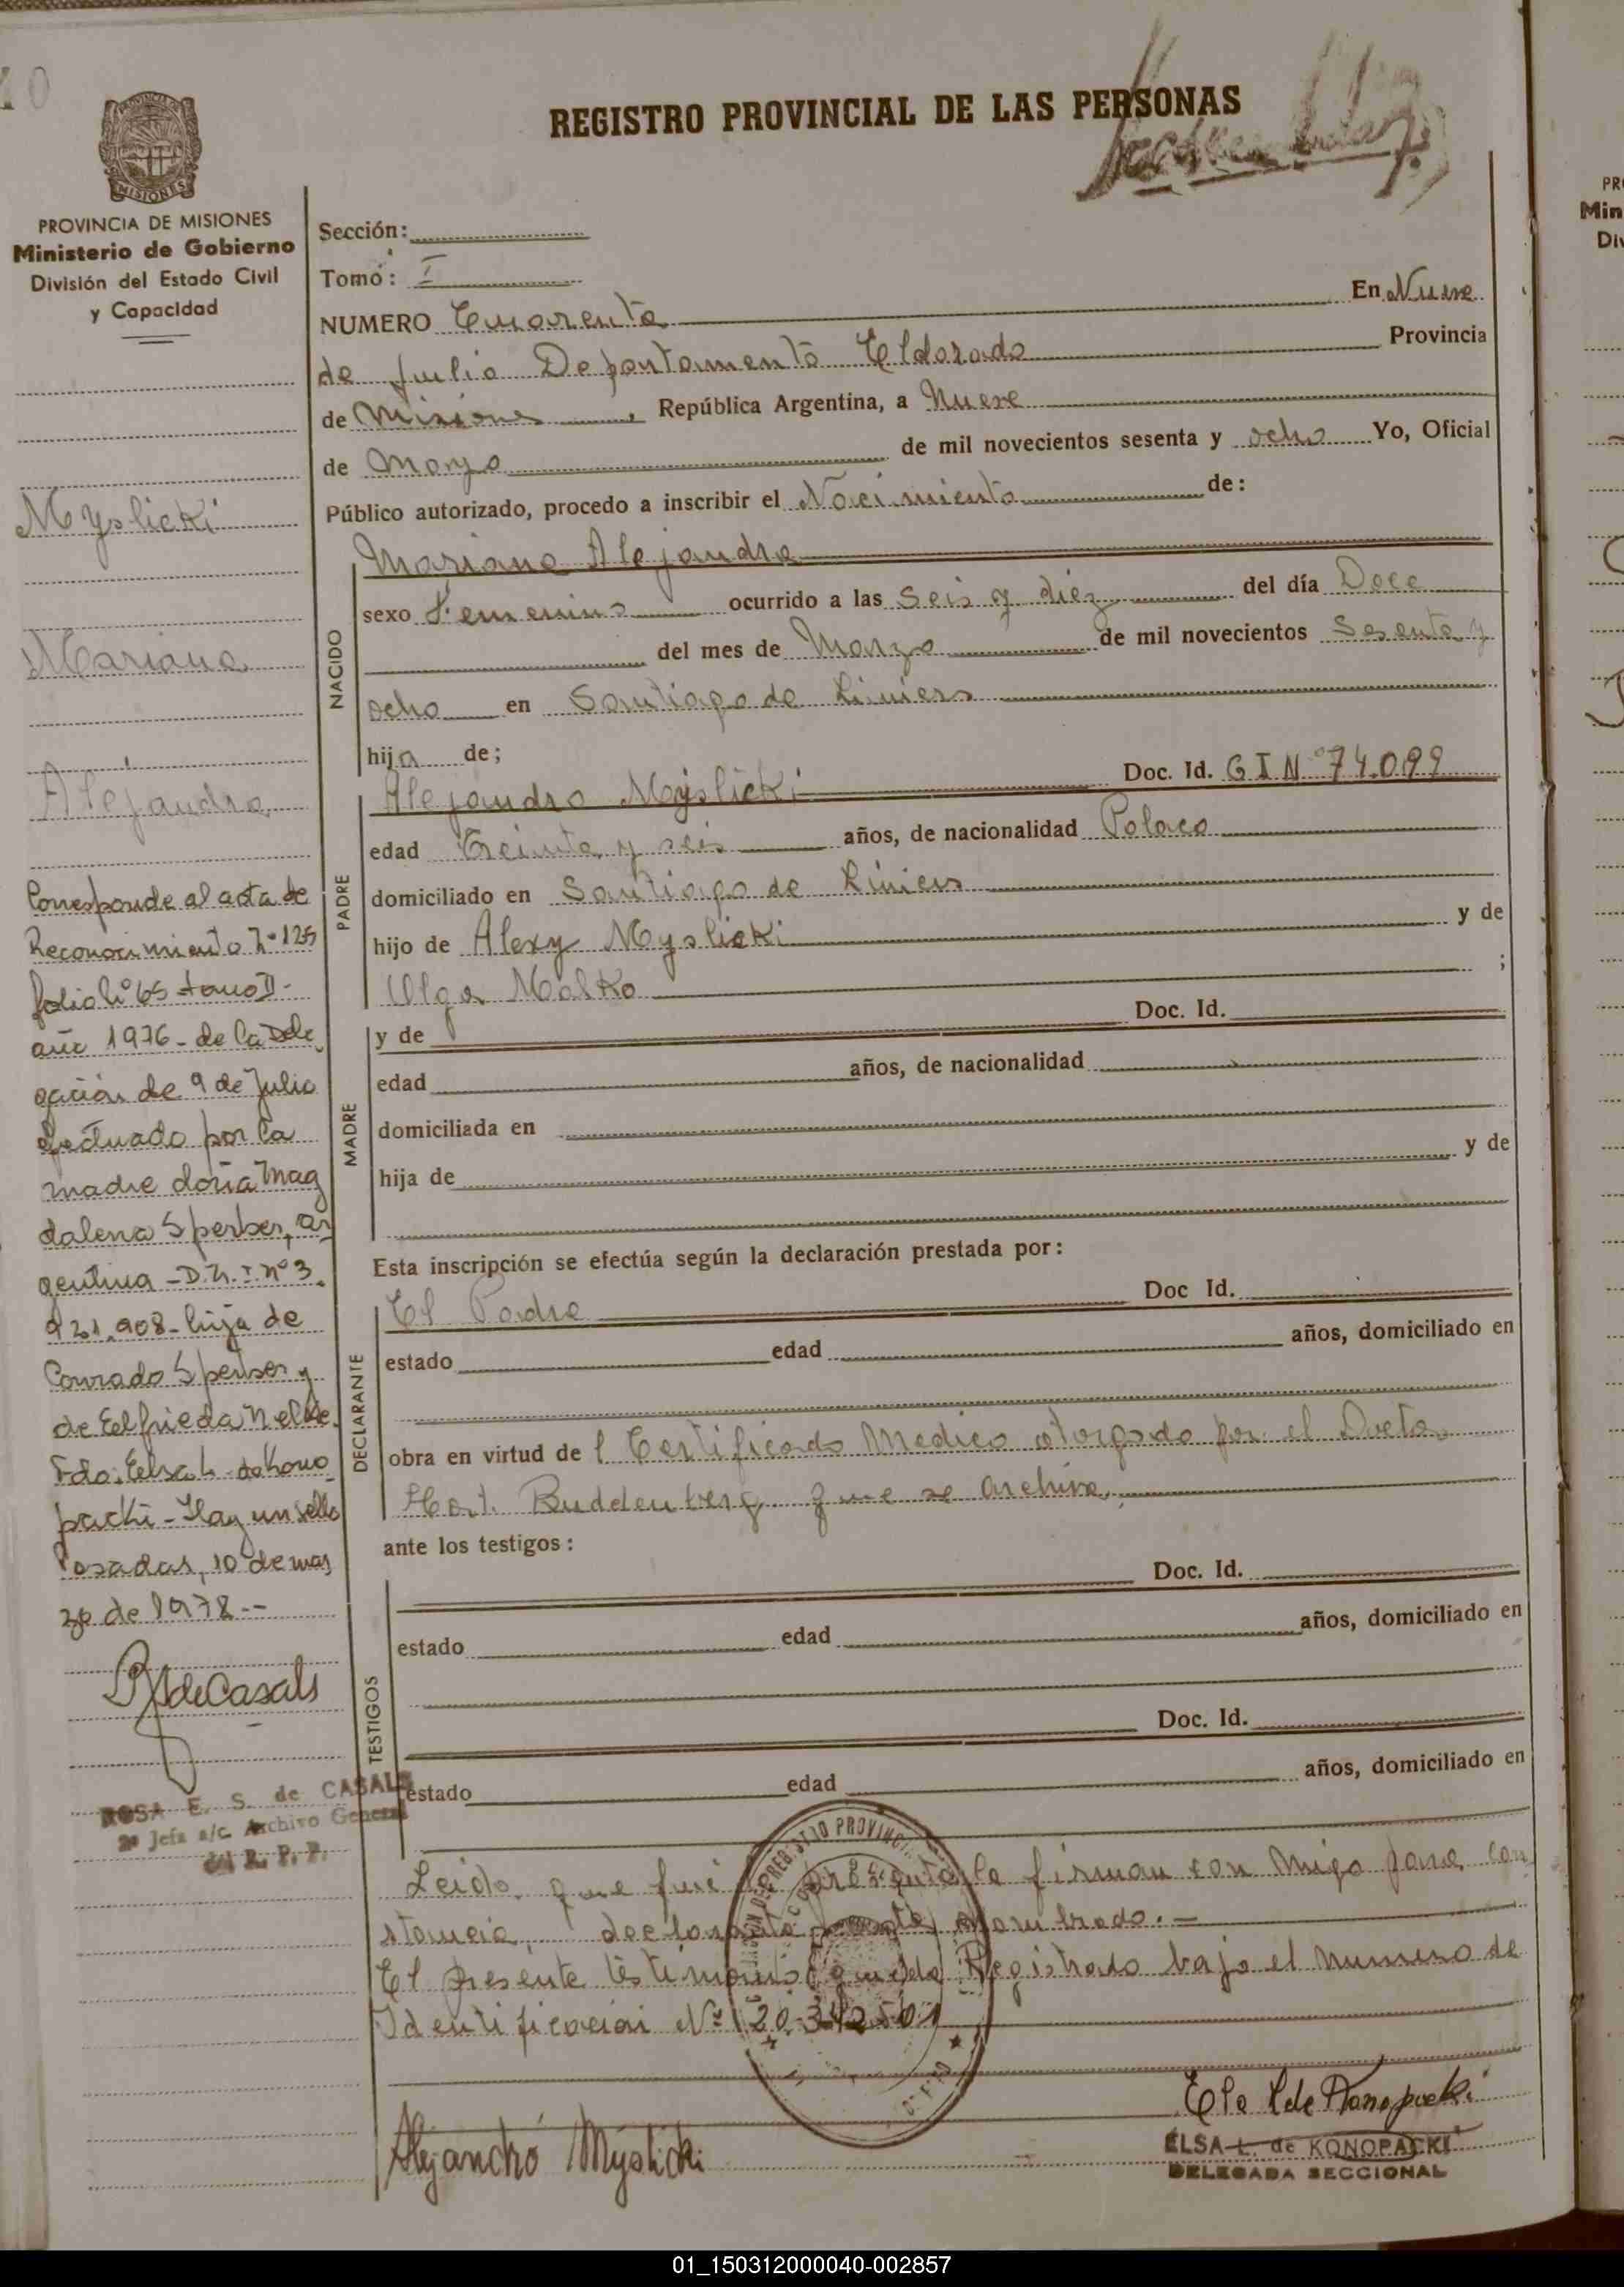 40
REGISTRO PROVINCIAL DE LAS PERSONAS
MISIONES
PROVINCIA DE MISIONES
Ministerio de Gobierno
División del Estado Civil
y Capacidad
Sección:
Tomo: I
NUMERO Cuarenta En Nueve
de Julio Departamento Eldorado Provincia
de Misiones, República Argentina, a Nueve
de Mayo de mil novecientos sesenta y ocho Yo, Oficial
Público autorizado, procedo a inscribir el Nacimiento de:
Myslicki
Mariana
Alejandra
NACIDO
Mariana Alejandra
sexo Femenino ocurrido a las Seis y diez del día Doce
del mes de Marzo de mil novecientos Sesenta y
ocho en Santiago de Liniers
hija de;
PADRE
Alejandro Myslicki Doc. Id. G I Nº 74.099
edad Treinta y seis años, de nacionalidad Polaco
domiciliado en Santiago de Liniers
hijo de Alexy Myslicki y de
Olga Malko ;
MADRE
y de Doc. Id.
edad años, de nacionalidad
domiciliada en
hija de y de
Esta inscripción se efectúa según la declaración prestada por:
DECLARANTE
El Padre Doc Id.
estado edad años, domiciliado en
obra en virtud de l Certificado Medico otorgado por el Doctor
Host. Buddenberg que se archiva.
ante los testigos:
TESTIGOS
Doc. Id.
estado edad años, domiciliado en
Doc. Id.
estado edad años, domiciliado en
Leida que fue la presente la firman con migo para con
stancia, declarante nombrado.—
El presente testimonio queda Registrado bajo el numero de
Identificación Nº 20.342.501
Corresponde al acta de
Reconocimiento Nº 125
folio Nº 65 tomo II-
año 1976- de la Dele
gación de 9 de Julio
efectuado por la
madre doña Mag
dalena Sperber, ar
gentina -D.N.I. Nº 3.
921.908- hija de
Conrado Sperber y
de Elfrieda
Fdo: Elsa L. de Kono
packi- Hay un sello
Posadas, 10 de mar
zo de 1978--
R S de Casals
ROSA E. S. de CASALS
2ª Jefa a/c. Archivo General
del R. P. P.
Alejandro Myslicki
Elsa L de Konopacki
ELSA L. de KONOPACKI
DELEGADA SECCIONAL
01_150312000040-002857